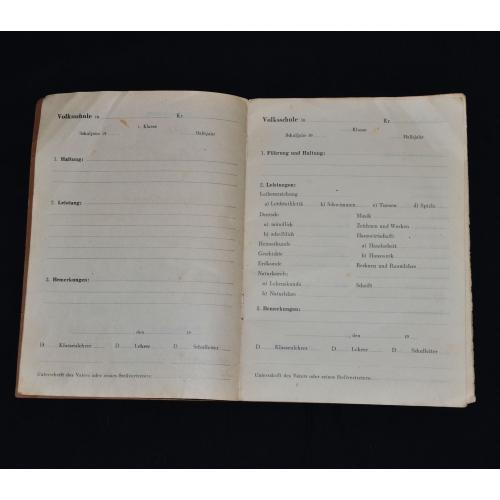 Volksschule in Kr.
1. Klasse
Schuljahr 19 Halbjahr
1. Haltung:
2. Leistung:
3. Bemerkungen:
, den 19
D Klassenlehrer D Lehrer D Schulleiter
Unterschrift des Vaters oder seines Stellvertreters:
Volksschule in Kr.
Klasse
Schuljahr 19 Halbjahr
1. Führung und Haltung:
2. Leistungen:
Leibeserziehung
a) Leichtathletik b) Schwimmen c) Turnen d) Spiele
Deutsch: Musik
a) mündlich Zeichnen und Werken
b) schriftlich Hauswirtschaft:
Heimatkunde a) Handarbeit
Geschichte b) Hauswerk
Erdkunde Rechnen und Raumlehre
Naturkunde:
a) Lebenskunde Schrift
b) Naturlehre
3. Bemerkungen:
, den 19
D Klassenlehrer D Lehrer D Schulleiter
Unterschrift des Vaters oder seines Stellvertreters: